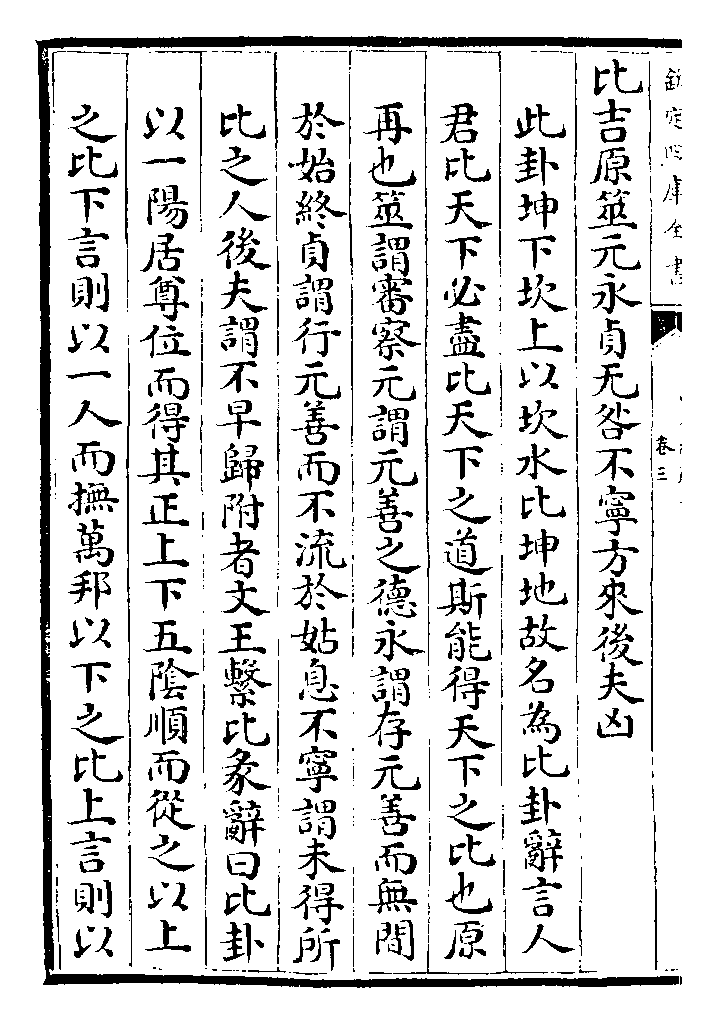 欽定四庫全書
卷三
比吉原筮元永貞无咎不寧方來後夫凶
此卦坤下坎上以坎水比坤地故名為比卦辭言人
君比天下必盡比天下之道斯能得天下之比也原
再也筮謂審察元謂元善之德永謂存元善而無間
於始終貞謂行元善而不流於姑息不寧謂未得所
比之人後夫謂不早歸附者文王繫比彖辭曰比卦
以一陽居尊位而得其正上下五陰順而從之以上
之比下言則以一人而撫萬邦以下之比上言則以